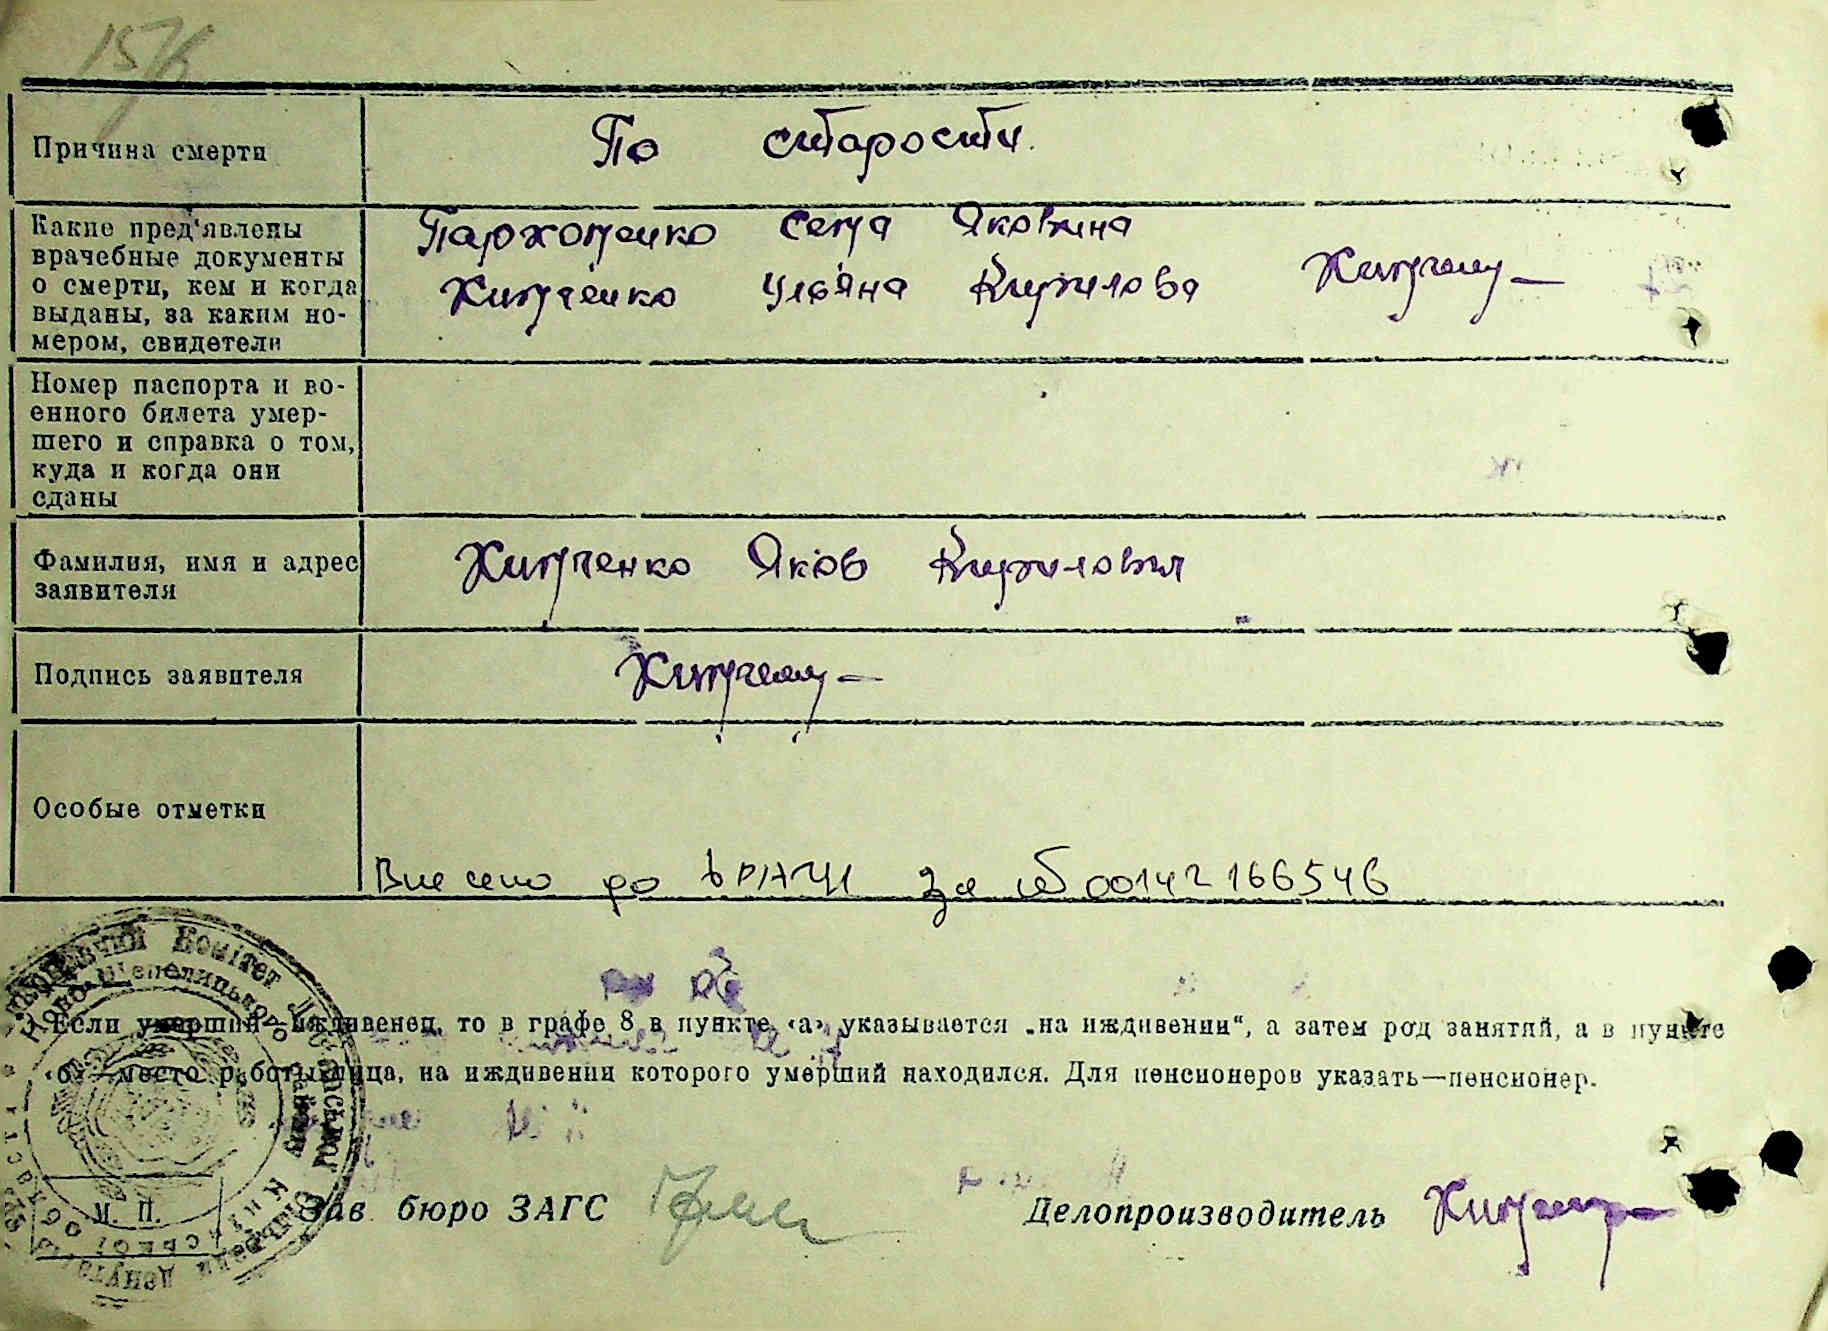 157б
Причина смерти
По старости.
Какие пред'явлены
врачебные документы
о смерти, кем и когда
выданы, за каким но-
мером, свидетели
Пархоменко Сема Яковина
Химченко Уляна Кирилова
Номер паспорта и во-
енного билета умер-
шего и справка о том,
куда и когда они
сданы
Фамилия, имя и адрес
заявителя
Химченко Яков Кирилович
Подпись заявителя
Особые отметки
Внесено до ДРАЦС за № 00142166546
Комітет
*) Если умерший—иждивенец, то в графе 8 в пункте „а» указывается „на иждивении“, а затем род занятий, а в пункте
«б»—место работы лица, на иждивении которого умерший находился. Для пенсионеров указать—пенсионер.
М. П.
Зав бюро ЗАГС
Делопроизводитель